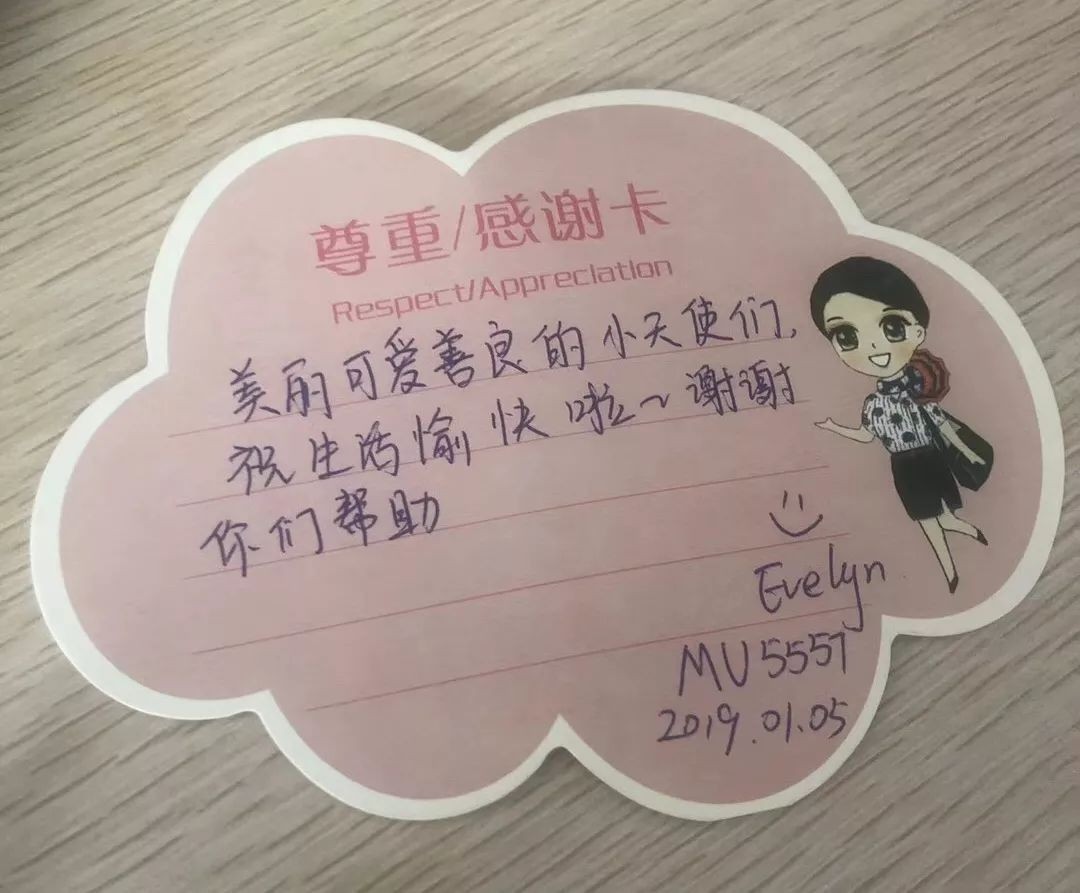 尊重/感谢卡
Respect/Appreciation
美丽可爱善良的小天使们,
祝生活愉快啦~谢谢
你们帮助
Evelyn
MU5557
2019.01.05